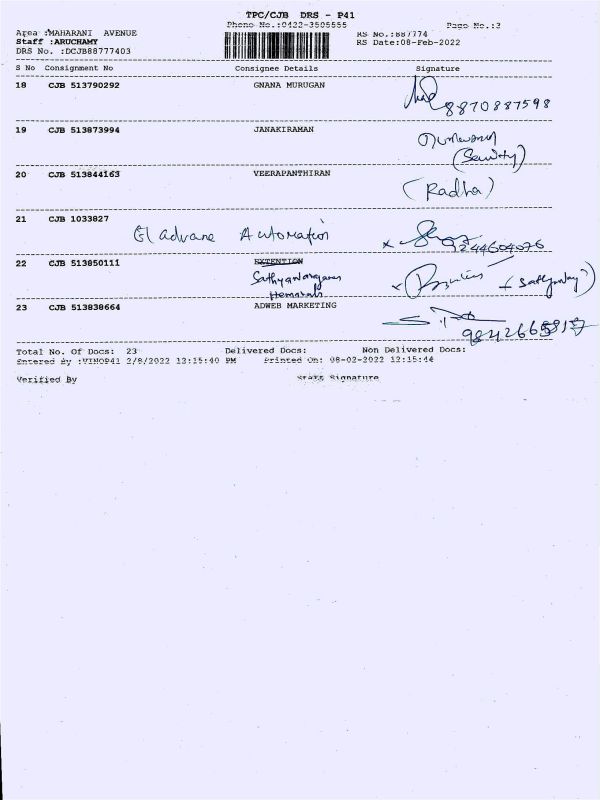 TPC/CJB DRS - P41
Phone No.:0422-3505555
Page No.:3
Area :MAHARANI AVENUE
RS No.:887774
Staff :ARUCHAMY
RS Date:08-Feb-2022
DRS No. :DCJB88777403
S No Consignment No Consignee Details Signature
18 CJB 513790292 GNANA MURUGAN
8870887598
19 CJB 513873994 JANAKIRAMAN
(Security)
20 CJB 513844163 VEERAPANTHIRAN
(Radha)
21 CJB 1033827
Automation
9244604076
22 CJB 513850111 EXTENTION
23 CJB 513838664 ADWEB MARKETING
Total No. Of Docs: 23 Delivered Docs: Non Delivered Docs:
Entered By :VINOP41 2/8/2022 12:15:40 PM Printed On: 08-02-2022 12:15:44
Verified By Staff Signature